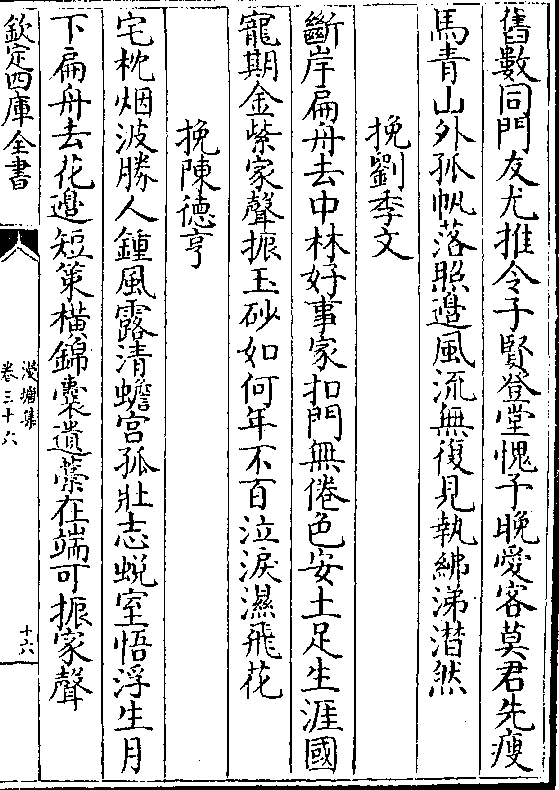 舊數同門友尤推令子賢登堂愧予晚愛客莫君先瘦
馬青山外孤帆落照邉風流無復見執紼涕潸然
挽劉季文
斷岸扁舟去中林好事家扣門無倦色安土足生涯國
寵期金紫家聲振玉砂如何年不百泣淚濕飛花
挽陳德亨
宅枕烟波勝人鍾風露清蟾宫孤壯志蜕室悟浮生月
下扁舟去花邉短策橫錦囊遺藁在端可振家聲
欽定四庫全書
漫塘集
卷三十六
十六